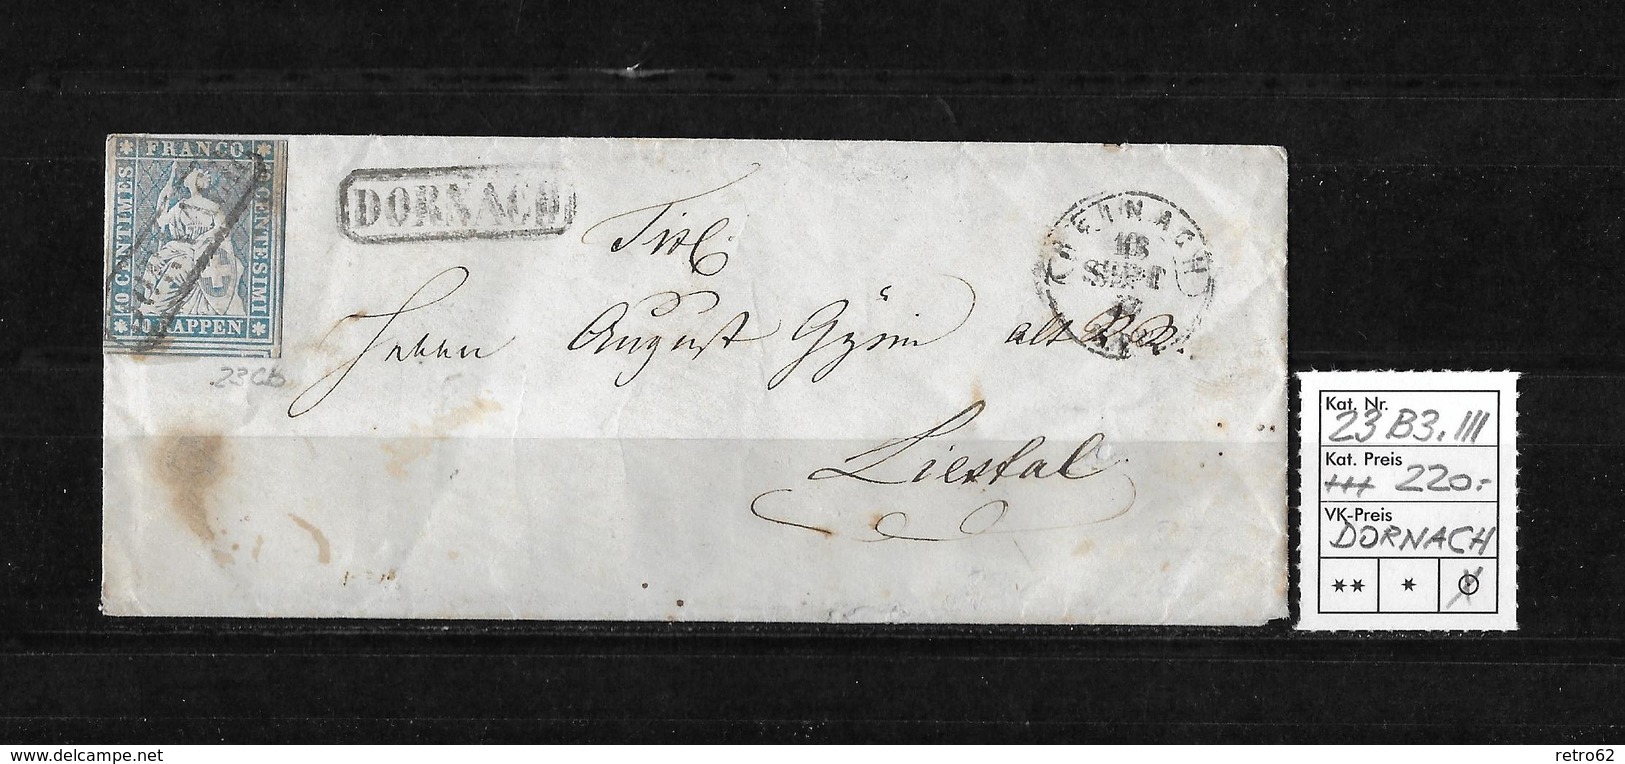 FRANCO
10 CENTIMES
CENTESIMI
10 RAPPEN
DORNACH
DORNACH
REINACH
SEPT
Herrn August Gysin alt
Liestal
Kat. Nr.
23 B3. III
Kat. Preis
220.-
VK-Preis
DORNACH
delcampe.net
retro62